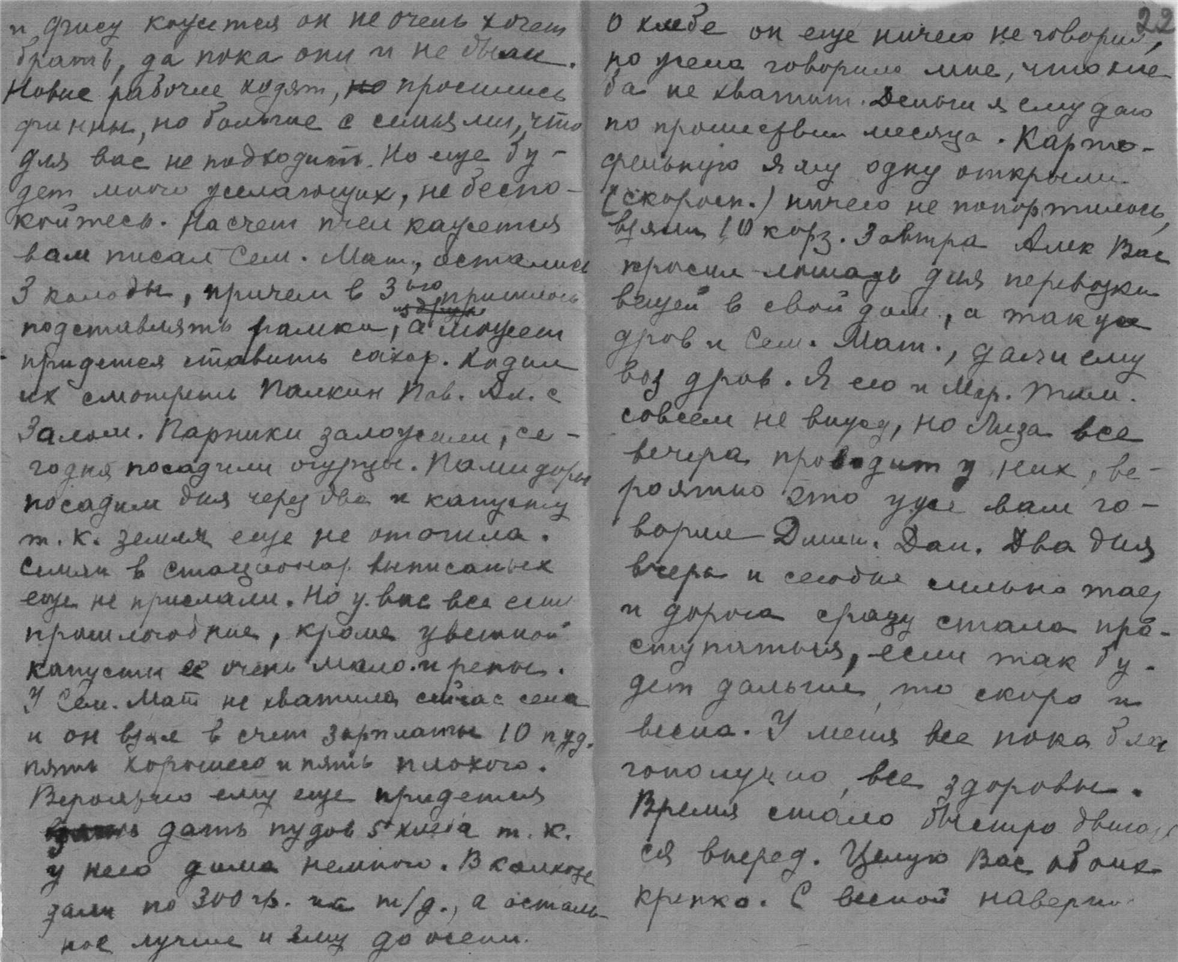 и фису кажется он не очень хочет
брать, да пока они и не были.
Новые рабочие ходят, но просились
финны, но больше с семьями, что
для вас не подходит. Но еще бу-
дет много желающих, не беспо-
койтесь. Насчет пчел кажется
вам писал Сем. Мат., остались
3 колоды, причем в 3ью пришлось
подставлять рамки, а может
придется ставить сахар. Ходил
их смотреть Палкин Пав. Ал. с
Залом. Парники заложили, се-
годня посадили огурцы. Помидоры
посадим дня через два и капусту
т. к. земля еще не отошла.
Семян в стационар выписаных
еще не прислали. Но у вас все есть
прошлогодние, кроме цветной
капусты ее очень мало и репы.
У Сем. Мат не хватило сейчас сена
и он взял в счет зарплаты 10 пуд.
пять хорошего и пять плохого.
Вероятно ему еще придется
дать пудов 5 хлеба т. к.
у него дома немного. В колхозе
дали по 300 гр. на т/д., а осталь-
ное лучше и ему до осени.
22
О хлебе он еще ничего не говорил,
но жена говорила мне, что хле
ба не хватит. Деньги я ему даю
по прошествии месяца. Карто-
фельную яму одну открыли
(скоросп.) ничего не попортилось,
взяли 10 корз. Завтра Алек Вас
просил лошадь для перевозки
вещей в свой дом, а также
дров и Сем. Мат., дам ему
воз дров. Я его и Мар. Тим.
совсем не вижу, но Лиза все
вечера проводит у них, ве-
роятно это уже вам го-
ворил Дмит. Дан. Два дня
вчера и сегодня сильно тает
и дорога сразу стала про-
ступаться, если так бу-
дет дальше, то скоро и
весна. У меня все пока бла
гополучно, все здоровы.
Время стало быстро двигать
ся вперед. Целую Вас обоих
крепко. С весной наверно